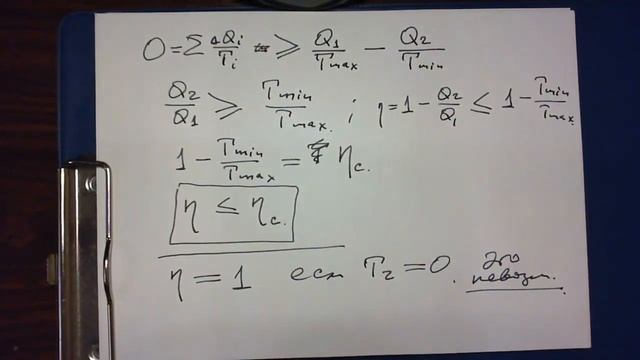 0 = Σ ΔQi/Ti ≥ Q1/Tmax − Q2/Tmin
Q2/Q1 ≥ Tmin/Tmax ; η = 1 − Q2/Q1 ≤ 1 − Tmin/Tmax.
1 − Tmin/Tmax = ηc.
η ≤ ηc.
η = 1 если T2 = 0. Это невозм.